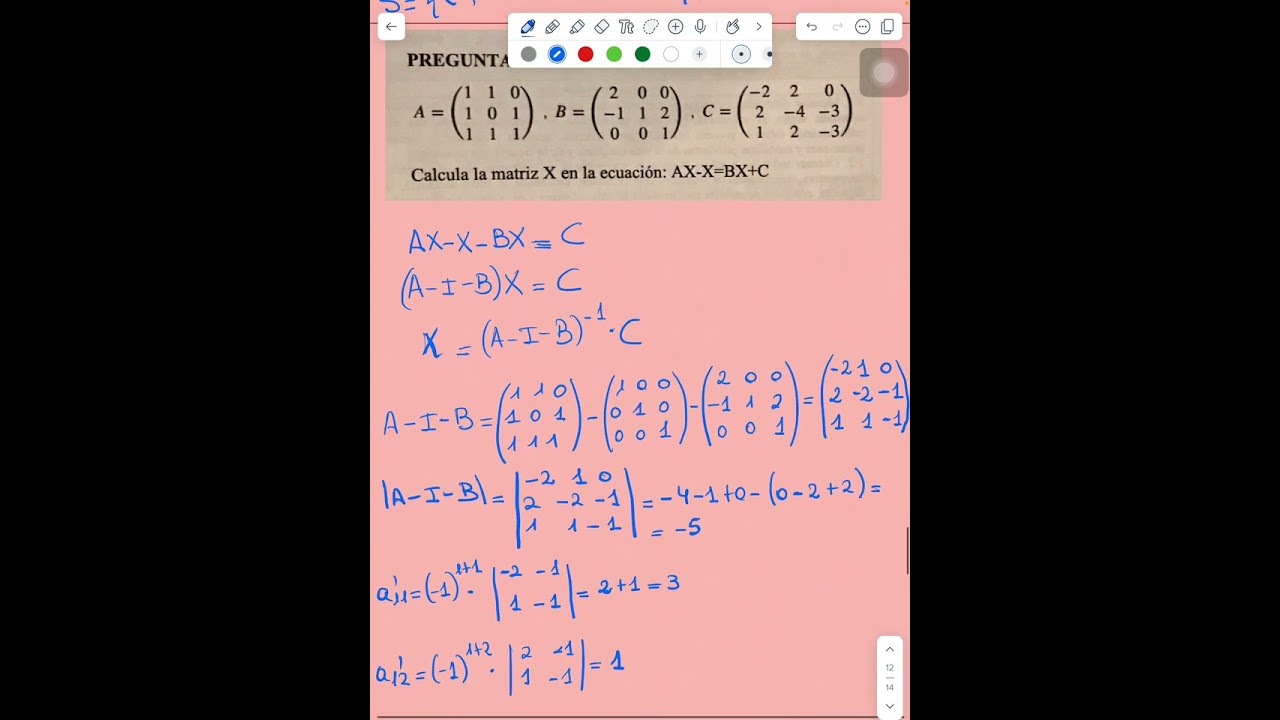 PREGUNTA
A = (1 1 0; 1 0 1; 1 1 1), B = (2 0 0; -1 1 2; 0 0 1), C = (-2 2 0; 2 -4 -3; 1 2 -3)
Calcula la matriz X en la ecuación: AX-X=BX+C
AX-X-BX = C
(A-I-B)X = C
X = (A-I-B)^-1 · C
A-I-B = (1 1 0; 1 0 1; 1 1 1) - (1 0 0; 0 1 0; 0 0 1) - (2 0 0; -1 1 2; 0 0 1) = (-2 1 0; 2 -2 -1; 1 1 -1)
|A-I-B| = |-2 1 0; 2 -2 -1; 1 1 -1| = -4-1+0-(0-2+2) =
= -5
a'11 = (-1)^1+1 · |-2 -1; 1 -1| = 2+1 = 3
a'12 = (-1)^1+2 · |2 -1; 1 -1| = 1
Tt
12
14